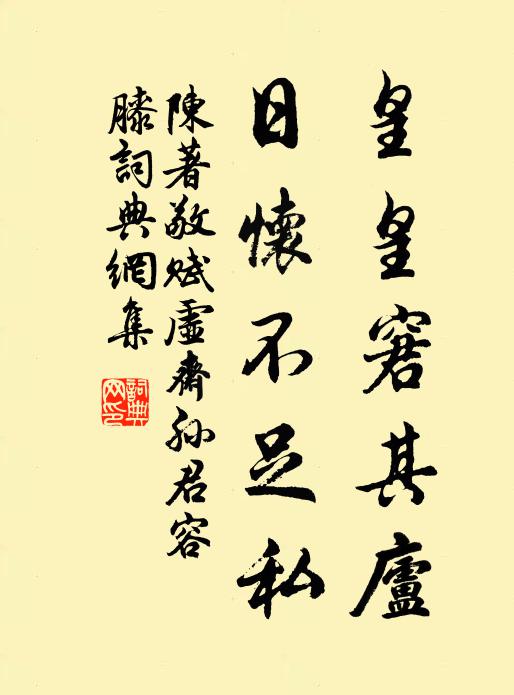 皇皇窘其廬
日懷不足私
陳著敬賦虛齋孫君容
膝詞典網集
詞典
网印